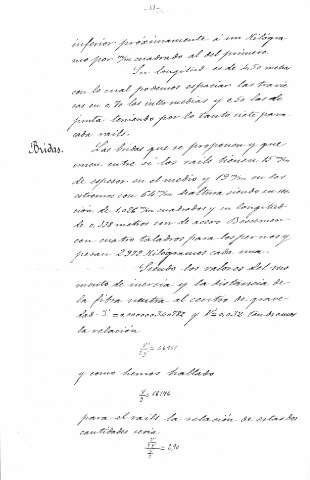 -33-
inferior próximamente á un Kilógra
mo por m/m cuadrado al del primero.
Su longitud es de 4,50 metros
con lo cual podemos espaciar las travie
sas en 0,70 las intermedias y 0,50 las de
junta teniendo por lo tanto siete para
cada rails.
Bridas.
Las bridas que se proponen y que
unen entre sí los rails tienen 15 m/m
de espesor en el medio y 19 m/m en los
extremos con 64 m/m de altura siendo su sec
ción de 1,026 m/m cuadrados y su longitud
de 0,338 metros son de acero Bessemer
con cuatro taladros para los pernos y
pesan 2,972 Kilógramos cada una.
Siendo los valores del mo
mento de inercia y la distancia de
la fibra neutra al centro de grave
dad I' = y V' = 0,032 tendremos
la relación
y como hemos hallado
para el rails la relación de estas dos
cantidades sería